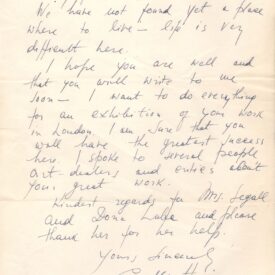 We have not found yet a place
where to live – life is very
difficult here.
I hope you are well and
that you will write to me
soon – I want to do everything
for an exhibition of your work
in London. I am sure that you
will have the greatest success
here. I spoke to several people
art-dealers and critics about
your great work.
Kindest regards for Mrs. Segall
and Dona Lulba and please
thank her for her help.
Yours Sincerely